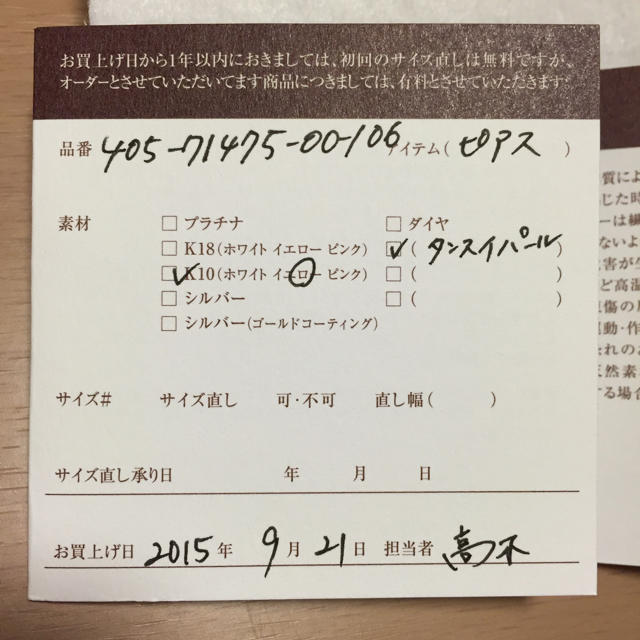 お買上げ日から1年以内におきましては、初回のサイズ直しは無料ですが、
オーダーとさせていただいてます商品につきましては、有料とさせていただきます。
品番 405-71475-00-106 アイテム( ピアス )
素材 □ プラチナ □ ダイヤ
□ K18(ホワイト イエロー ピンク) ☑ ( タンスイパール )
☑ K10(ホワイト イエロー ピンク) □ ( )
□ シルバー □ ( )
□ シルバー(ゴールドコーティング)
サイズ# サイズ直し 可・不可 直し幅( )
サイズ直し承り日 年 月 日
お買上げ日 2015 年 9 月 21 日 担当者 高木
質によ
した時
ーは繊
ないよ
ど高温
傷の原
動・作
れのお
然素
する場合